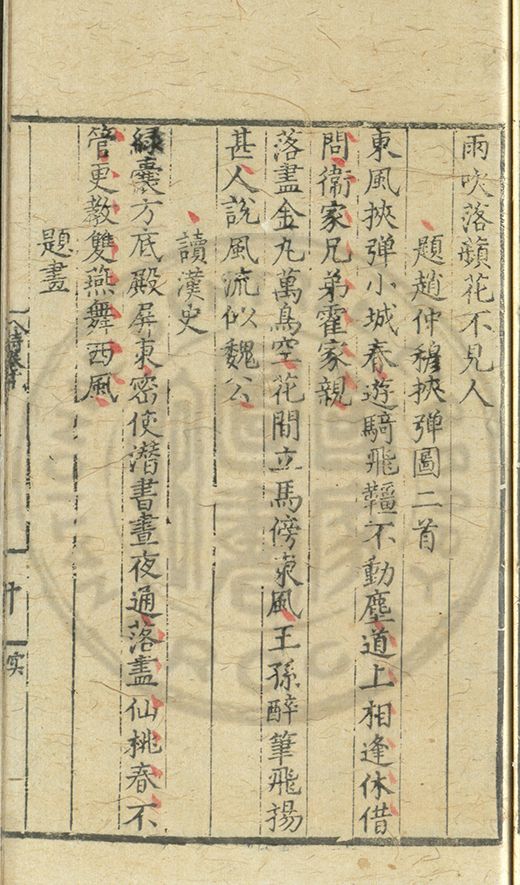 雨吹落蘋花不見人
題趙仲穆挾彈圖二首
東風挾彈小城春遊騎飛韁不動塵道上相逢休借
問衛家兄弟霍家親
落盡金丸萬鳥空花間立馬傍東風王孫醉筆飛揚
甚人說風流似魏公
讀漢史
綠囊方底殿屏東密使潛書晝夜通落盡仙桃春不
管更教雙燕舞西風
題畫
十